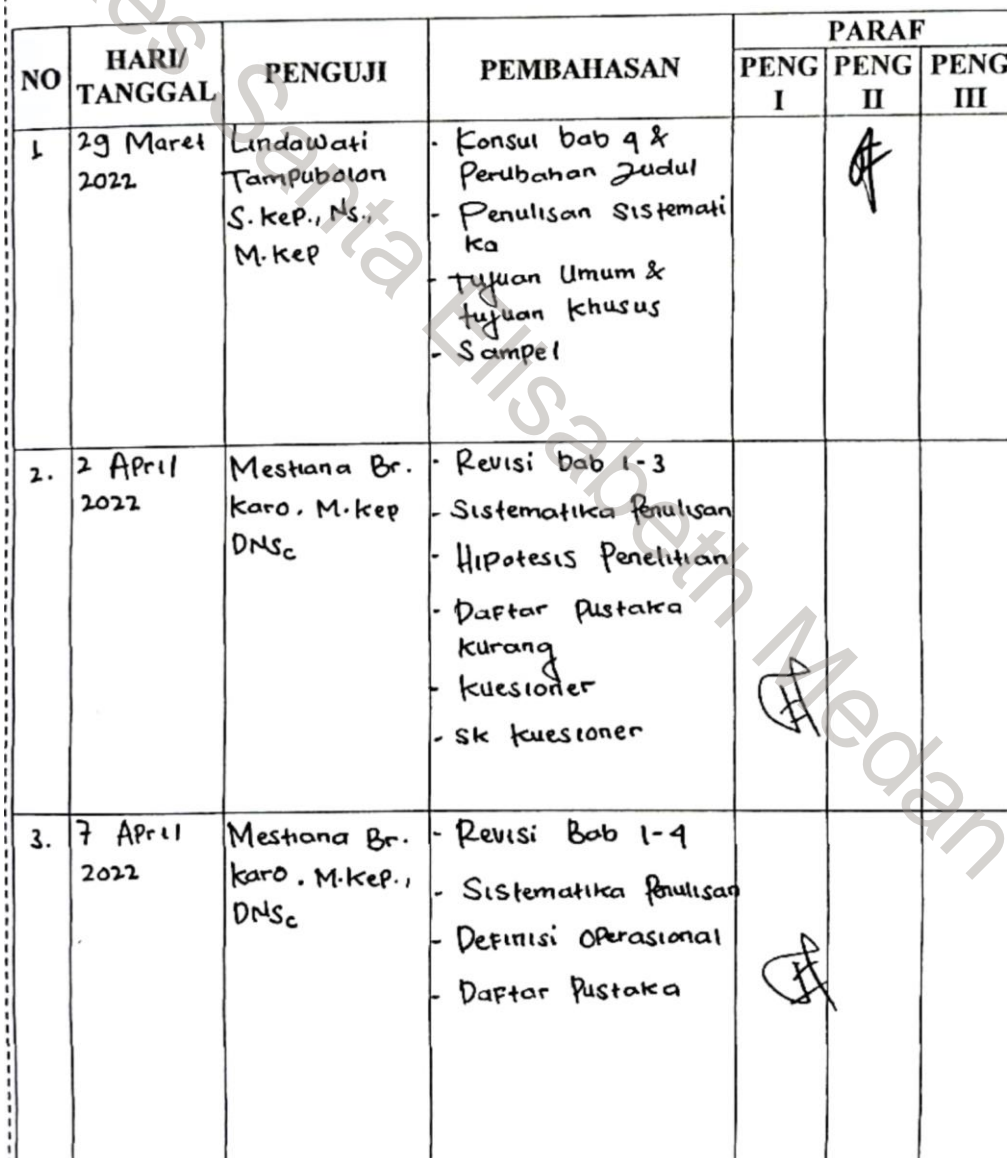 NO
HARI/
TANGGAL
PENGUJI
PEMBAHASAN
PARAF
PENG
I
PENG
II
PENG
III
1
29 Maret
2022
Lindawati
Tampubolon
S.Kep., Ns.,
M.Kep
- Konsul bab 4 &
Perubahan Judul
- Penulisan Sistemati
ka
- Tujuan Umum &
tujuan khusus
- Sampel
2.
2 April
2022
Mestiana Br.
Karo. M.Kep
DNSc
- Revisi bab 1-3
- Sistematika Penulisan
- Hipotesis Penelitian
- Daftar Pustaka
kurang
- kuesioner
- Sk kuesioner
3.
7 April
2022
Mestiana Br.
Karo. M.Kep.,
DNSc
- Revisi Bab 1-4
- Sistematika Penulisan
- Definisi Operasional
- Daftar Pustaka
Santa Elisabeth Medan